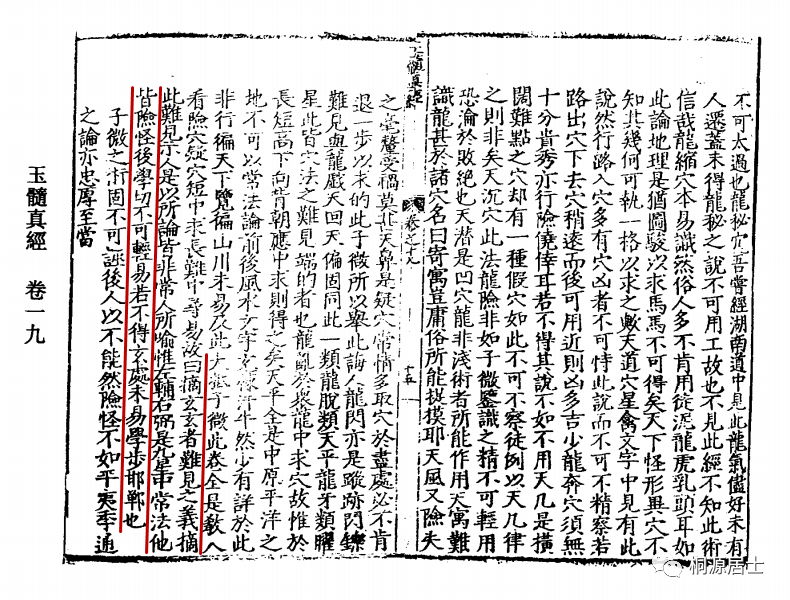 不可太過也龍秘穴吾嘗經湖南道中見此龍氣儘好未有
人遷蓋未得龍秘之說不可用工故也不見此經不知此術
信哉龍縮穴本易識然俗人多不肯用從泥龍虎乳頭耳如
此論地理是猶圖駿以求馬馬不可得矣天下怪形異穴不
知其幾何可執一格以求之歟天道穴星禽文字中見有此
說然行路入穴多有穴凶者不可恃此說而不可不精察若
路出穴下去穴稍遠而後可用近則凶多吉少龍奔穴須無
十分貴秀亦行險僥倖耳若不得其說不如不用天几是橫
闊難點之穴却有一種假穴如此不可不察徒例以天几律
之則非矣天沉穴此法龍險非如子微鑒識之精不可輕用
恐淪於敗絶也天潜是凹穴龍非淺術者所能作用天寓難
識龍甚於諸穴名曰寄寓豈庸俗所能捉摸耶天風又險失
玉髓真經
卷之十九
十五
之毫釐受禍莫非天鼻是疑穴常情多取穴於盡處必不肯
退一步以求的此子微所以舉此誨人龍門亦是蹤跡閃鑠
難見與龍戲天回天偏固同此一類龍脫類天平龍牙類
星此皆穴法之難見端的者也龍亂於衆龍中求穴故惟於
長短高下向背朝應中求則得之矣天平全是中原平洋之
地不可以常法論前後風水玄字玄然少有詳於此
非行徧天下覽徧山川未易及此大抵子微此卷全是敎人
看險穴疑穴短中求長難中尋易故曰摘玄玄者難見之義摘
此難見示人是以所論皆非常人所喻惟左輔右弼是九星中常法他
皆險怪後學切不可輕易若不得玄處未易學步邯鄲也
子微之術固不可誣後人以不能然險怪不如平夷季通
之論亦忠厚至當
玉髓真經 卷一九
桐源居士